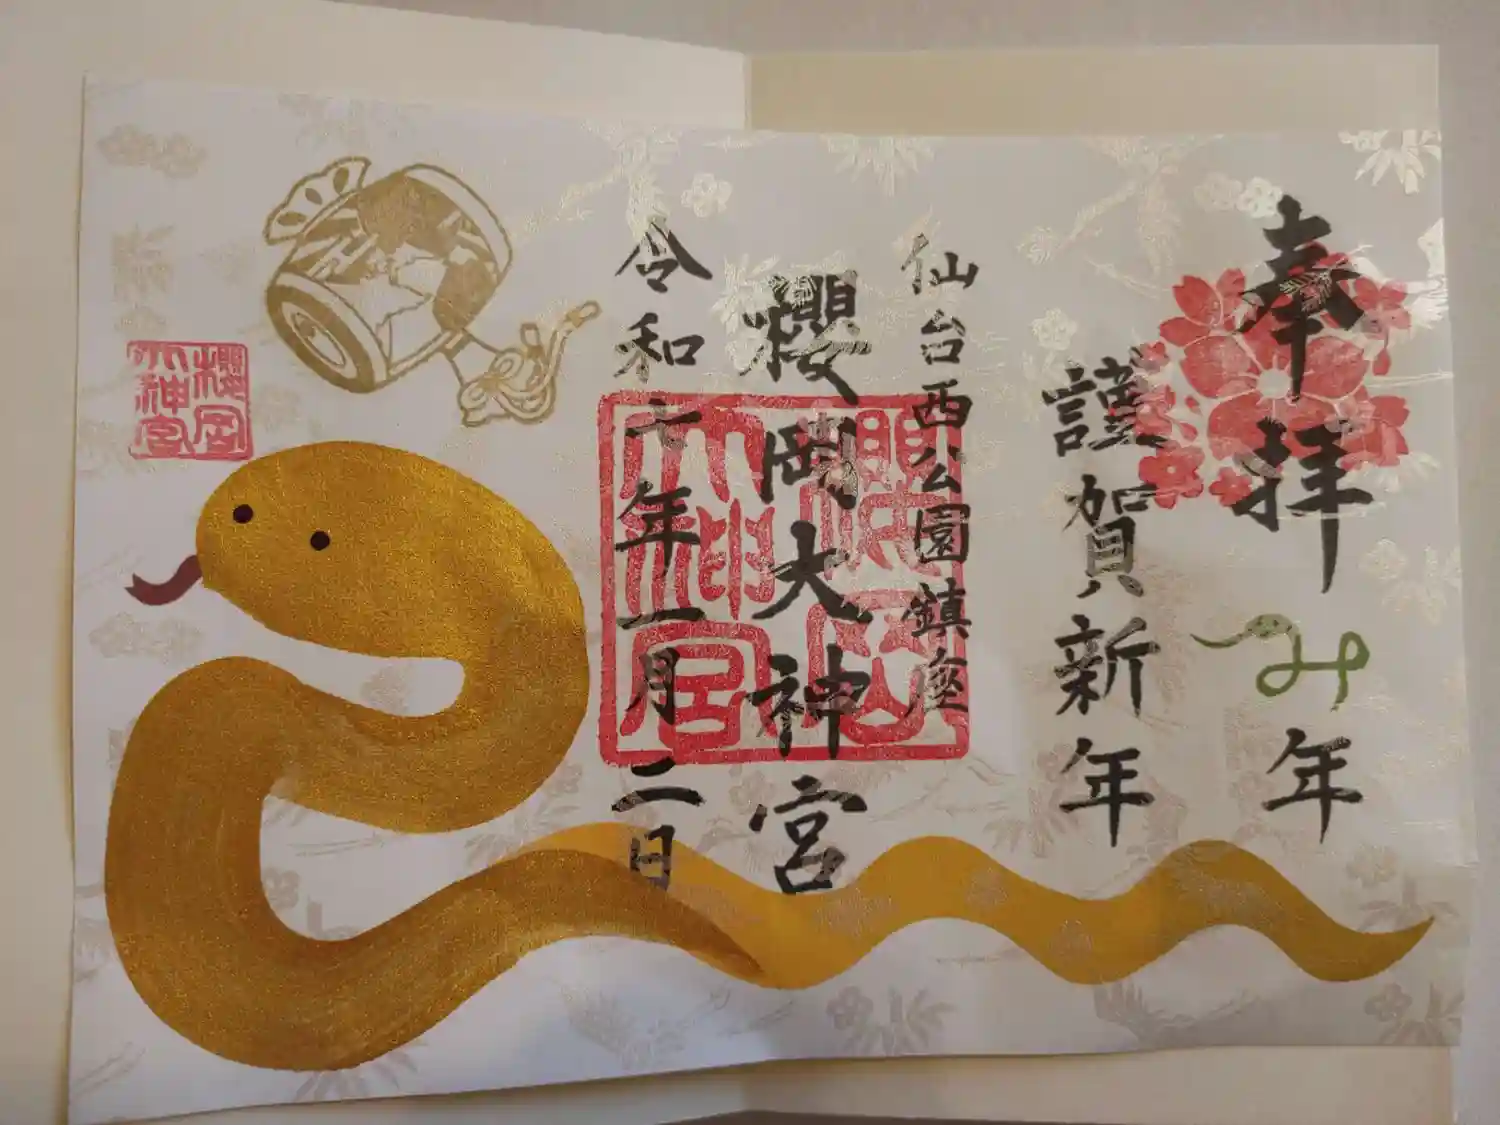 奉拝
み年
謹賀新年
仙台西公園鎮座
櫻岡大神宮
令和七年一月二日
櫻岡
大神宮
櫻岡
大神宮